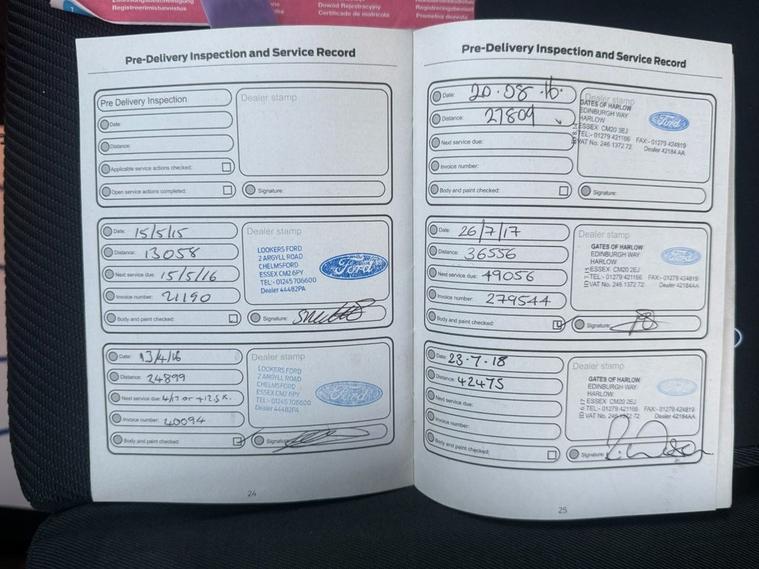 Registreerimistunnistus
Dowód Rejestracyjny
Certificado de matrícula
Pre-Delivery Inspection and Service Record
Pre Delivery Inspection
Date:
Distance:
Applicable service actions checked:
Open service actions completed:
Dealer stamp
Signature:
Date: 15/5/15
Distance: 13058
Next service due: 15/5/16
Invoice number: 21190
Body and paint checked:
Dealer stamp
LOOKERS FORD
2 ARGYLL ROAD
CHELMSFORD
ESSEX CM2 6PY
TEL:- 01245 706600
Dealer 44482PA
Ford
Signature:
Date: 13/4/16
Distance: 24899
Next service due: 4/17 or +12.5K.
Invoice number: 40094
Body and paint checked:
Dealer stamp
LOOKERS FORD
2 ARGYLL ROAD
CHELMSFORD
ESSEX CM2 6PY
TEL:- 01245 706600
Dealer 44482PA
Ford
Signature:
24
Pre-Delivery Inspection and Service Record
Date: 20.08.16.
Distance: 27809
Next service due:
Invoice number:
Body and paint checked:
Dealer stamp
GATES OF HARLOW
EDINBURGH WAY
HARLOW
ESSEX CM20 2EJ
TEL:- 01279 421166 FAX:- 01279 424819
VAT No. 246 1372 72 Dealer 42184AA
Ford
Signature:
Date: 26/7/17
Distance: 36556
Next service due: 49056
Invoice number: 279544
Body and paint checked:
Dealer stamp
GATES OF HARLOW
EDINBURGH WAY
HARLOW
ESSEX CM20 2EJ
TEL:- 01279 421166 FAX:- 01279 424819
VAT No. 246 1372 72 Dealer 42184AA
Ford
Signature:
Date: 23-7-18
Distance: 42475
Next service due:
Invoice number:
Body and paint checked:
Dealer stamp
GATES OF HARLOW
EDINBURGH WAY
HARLOW
ESSEX CM20 2EJ
TEL:- 01279 421166 FAX:- 01279 424819
VAT No. 246 1372 72 Dealer 42184AA
Ford
Signature:
25